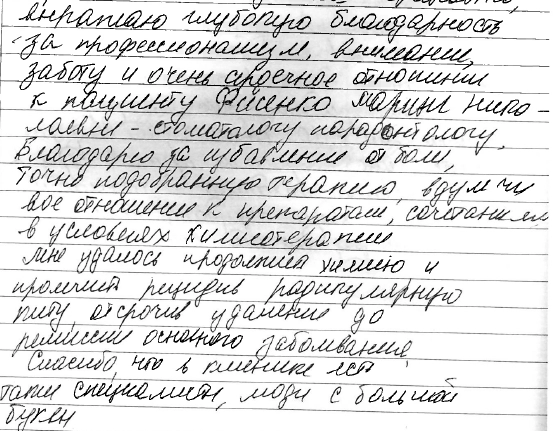 выражаю глубокую благодарность
за профессионализм, внимание,
заботу и очень сердечное отношение
к пациенту Фисенко Марине Нико-
лаевне - стоматологу пародонтологу.
Благодарю за избавление от боли,
точно подобранную терапию, вдумчи
вое отношение к препаратам, сочетанием
в условиях химиотерапии
Мне удалось продолжить химию и
пролечить рецидив радикулярную
кисту, отсрочив удаление до
ремиссии основного заболевания.
Спасибо, что в клинике есть
такие специалисты, люди с большой
буквы